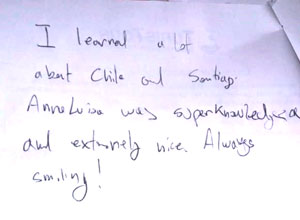 I learned a lot
about Chile and Santiago.
AnneLuisa was superknowledged
and extremely nice. Always
smiling!